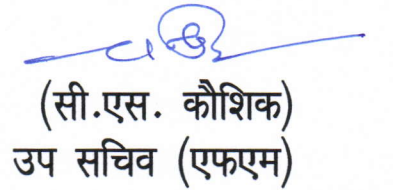 (सी.एस. कौशिक)
उप सचिव (एफएम)